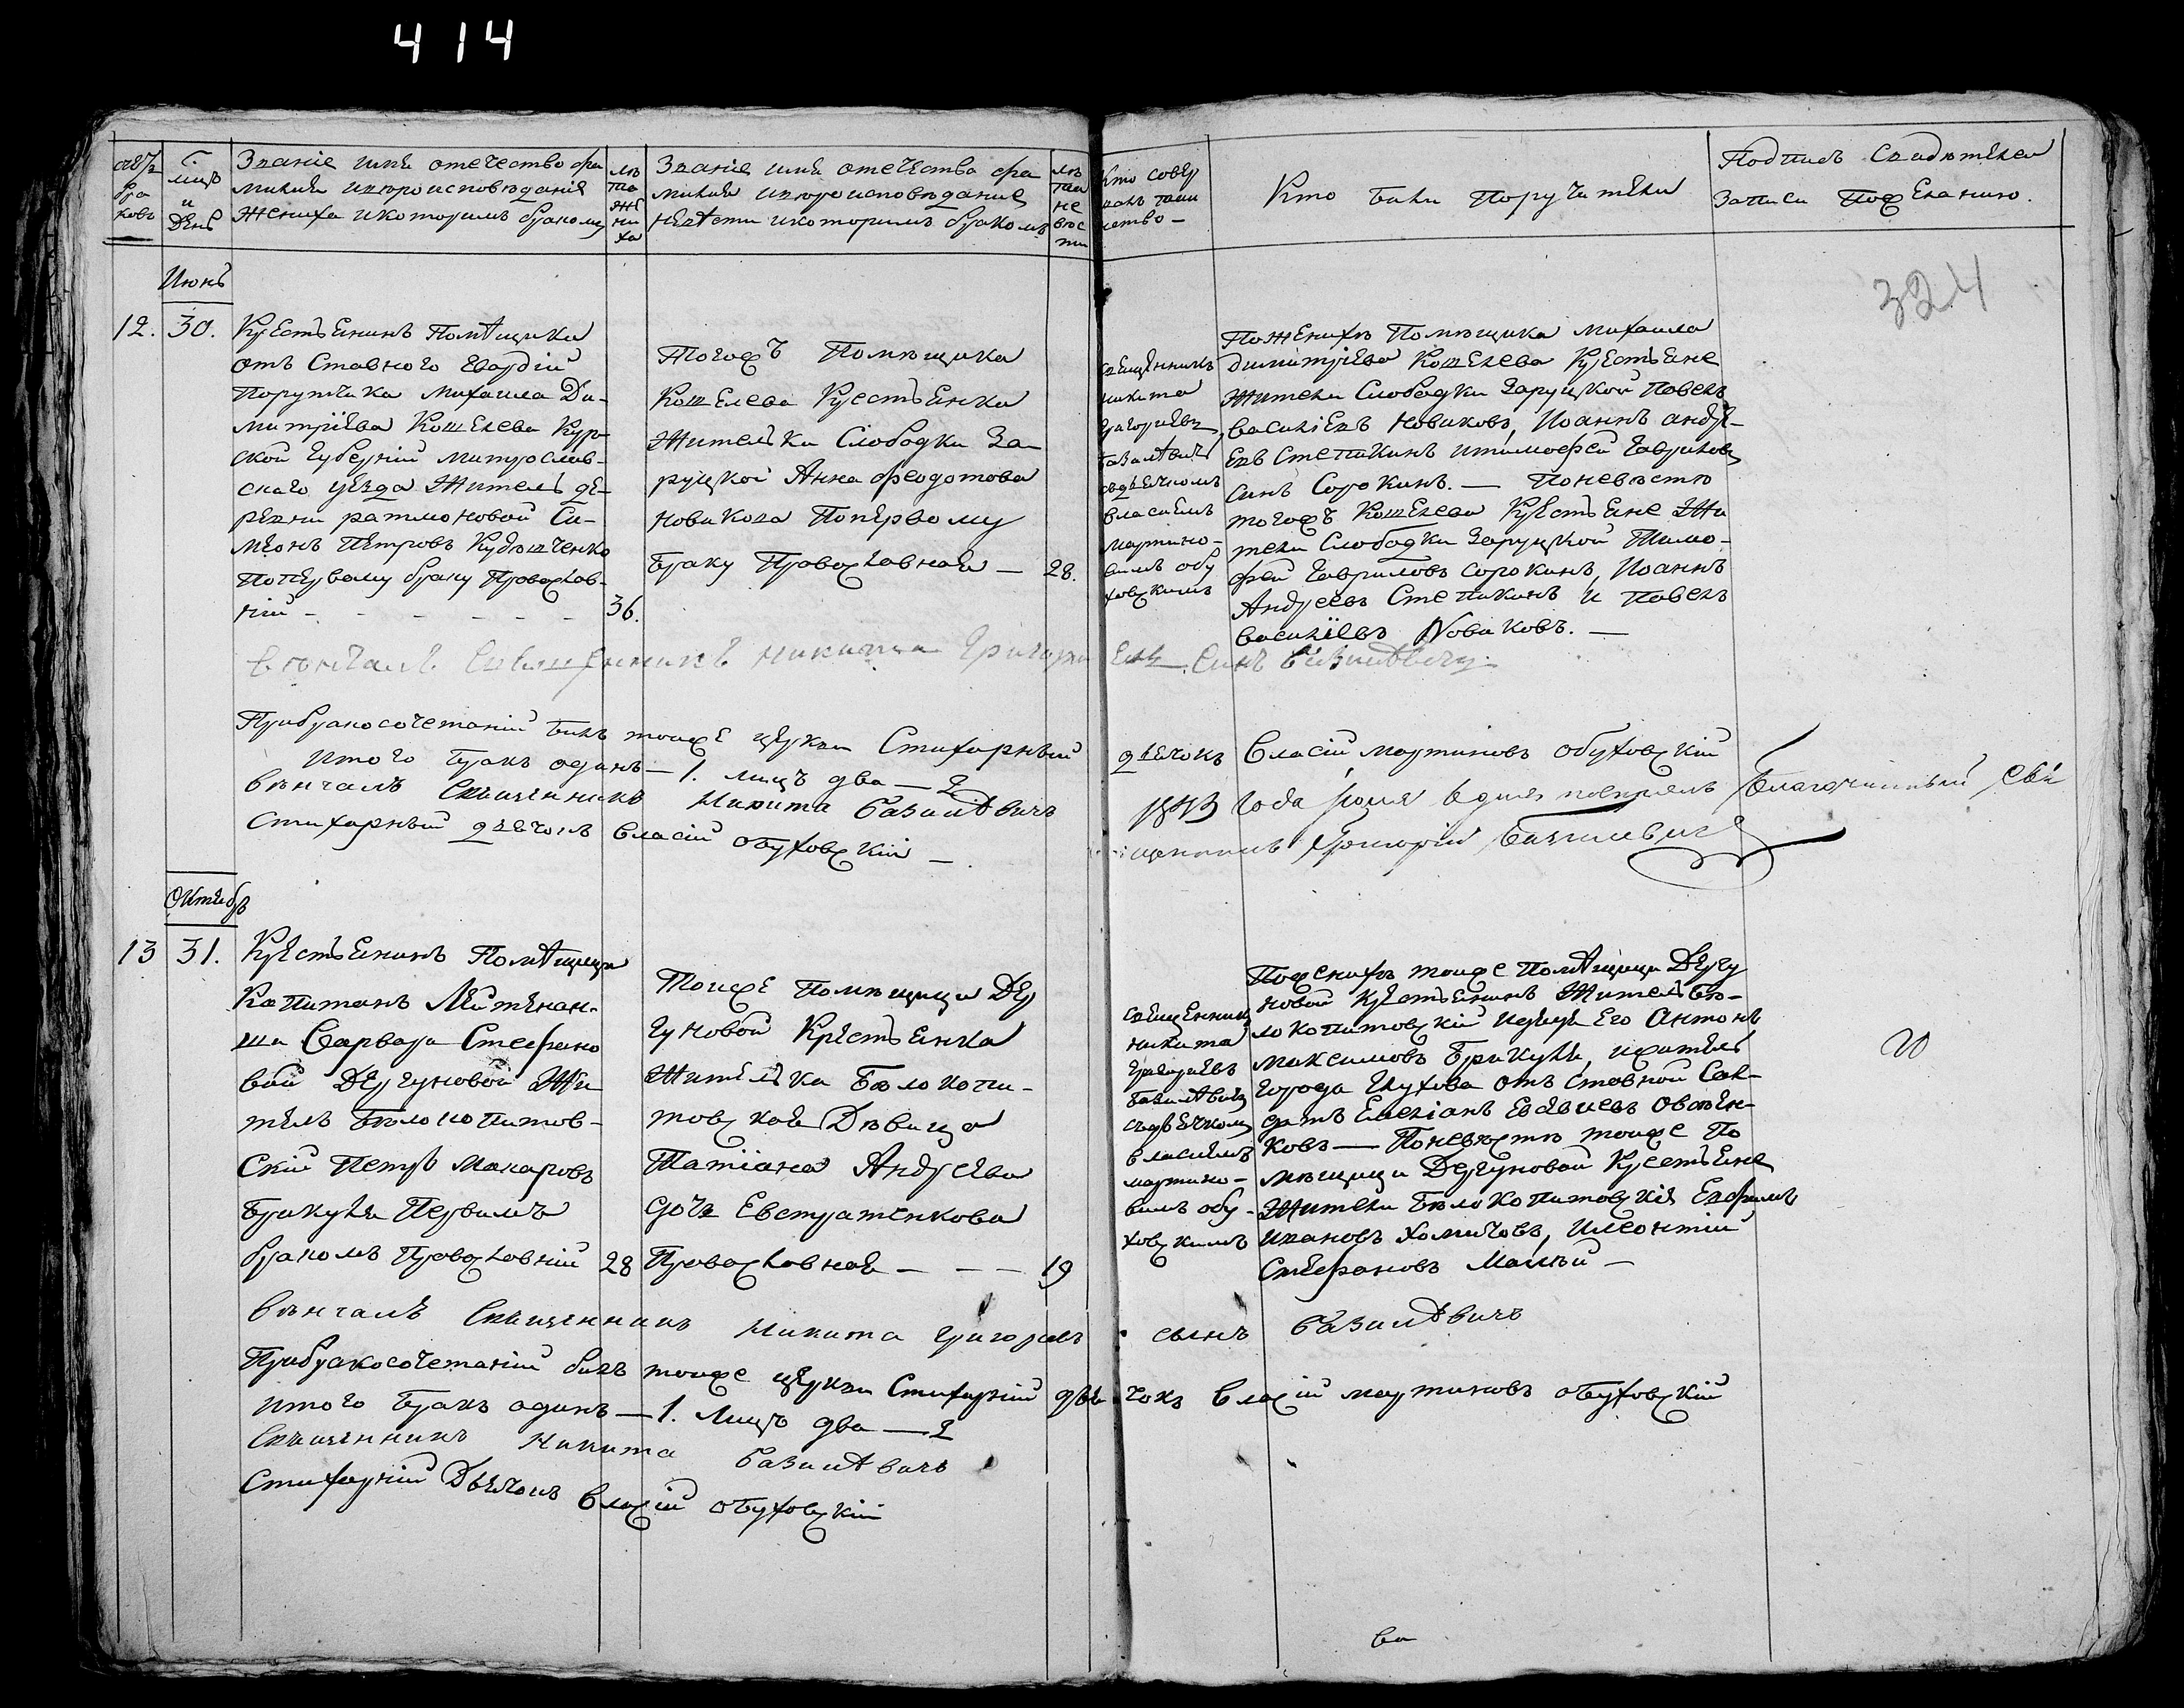 414
Званіе имя отечество фа
миліи ивероисповѣданія
жениха икоторимъ бракомъ
лѣ
та
же
ни
ха
Званіе имя отечества фа
миліи ивероисповѣданія
невѣсти икоторимъ бракомъ
лѣ
та
не
вѣс
ти
Кто совер
шалъ таин
ство —
Кто били поручители
Подпись свидѣтелей
записи пожеланию.
324
Июнь
12. 30.
Крестьянинъ Помѣщика
отъ Ставного Гвардіи
Порутчика Михаила Ди-
митріева Кошелева Кур-
ской Губерніи
скаго уезда Житель де-
ревни
Си-
меонъ Петровъ
Попервому браку Православ-
ній - - - - - - 36.
Тогожъ Помѣщика
Кошелева Крестьянка
Жителька Слободки За-
руцкой Анна Феодотова
Новикова Попервому
Браку Православная — 28.
священникъ
никита
Григориевъ
Базилѣвичъ
съдьячкомъ
власиемъ
мартино-
вимъ обу
ховскимъ
Поженихѣ Помѣщика михаила
димитріева Кошелева Крестьяне
Жители Слободки Заруцкой Павелъ
василіевъ Новиковъ, Иоаннъ андре-
евъ Степикинъ итимофей Гавриловъ
синъ Сорокинъ. — Поневѣстѣ
тогожъ Кошелева Крестьяне Жи
тели Слободки Заруцкой Тимо-
фей Гавриловъ сорокинъ, Иоаннъ
Андреевъ Степикинъ и Павелъ
василіевъ Новиковъ. —
вѣнчалъ Священникъ никита Григори евъ синъ Базилѣвичъ
Прибракосочетаніи билъ тоиже церкви Стихарный дьячокъ Власій мартиновъ обуховскій
итого бракъ одинъ — 1. лицъ два — 2
вѣнчалъ Священникъ Никита Базилѣвичъ
стихарный дьячокъ власій обуховскій —
года
Благочинный Свя
щенникъ Григорій Базилевичъ
Октябрь
13 31.
Крестьянинъ Помѣщици
Капитанъ Лейтенан-
ши Варвари Стефано
вой Дергуновой Жи-
тель Бѣлокопитов-
скій Петръ Макаровъ
Брикуля Первимъ
бракомъ Православній 28
Тоиже Помѣщици Дер
гуновой Крестьянка
Жителька Бѣлокопи-
товская Дѣвица
Татіана Андреева
дочь Евстратенкова
Православная — — — 19
священникъ
никита
Григориевъ
Базилѣвичъ
съдьячкомъ
власиемъ
мартино-
вимъ обу-
ховскимъ
Поженихѣ тоиже Помѣщици Дергу
новой Крестьянинъ Житель Бѣ-
локопитовскій идядя Его Антонъ
максимовъ Брикуля, ижитель
города Глухова отъ ставной Сол-
датъ Емеліанъ Евсѣвиевъ Овсѣен-
ковъ — Поневѣстѣ тоиже По
мѣщици Дергуновой Крестьяне
Жители Бѣлокопитовскія Ефимъ
ивановъ Хомичовъ, илеонтій
Стефановъ Малѣй —
вѣнчалъ Священникъ Никита Григориевъ сынъ Базилѣвичъ
Прибракосочетаніи билъ тоиже церкви Стихарній дья чокъ Власій мартиновъ обуховскій
итого бракъ одинъ — 1. Лицъ два — 2
Священникъ Никита Базилѣвичъ
Стихарній Дьячокъ Власій обуховскій